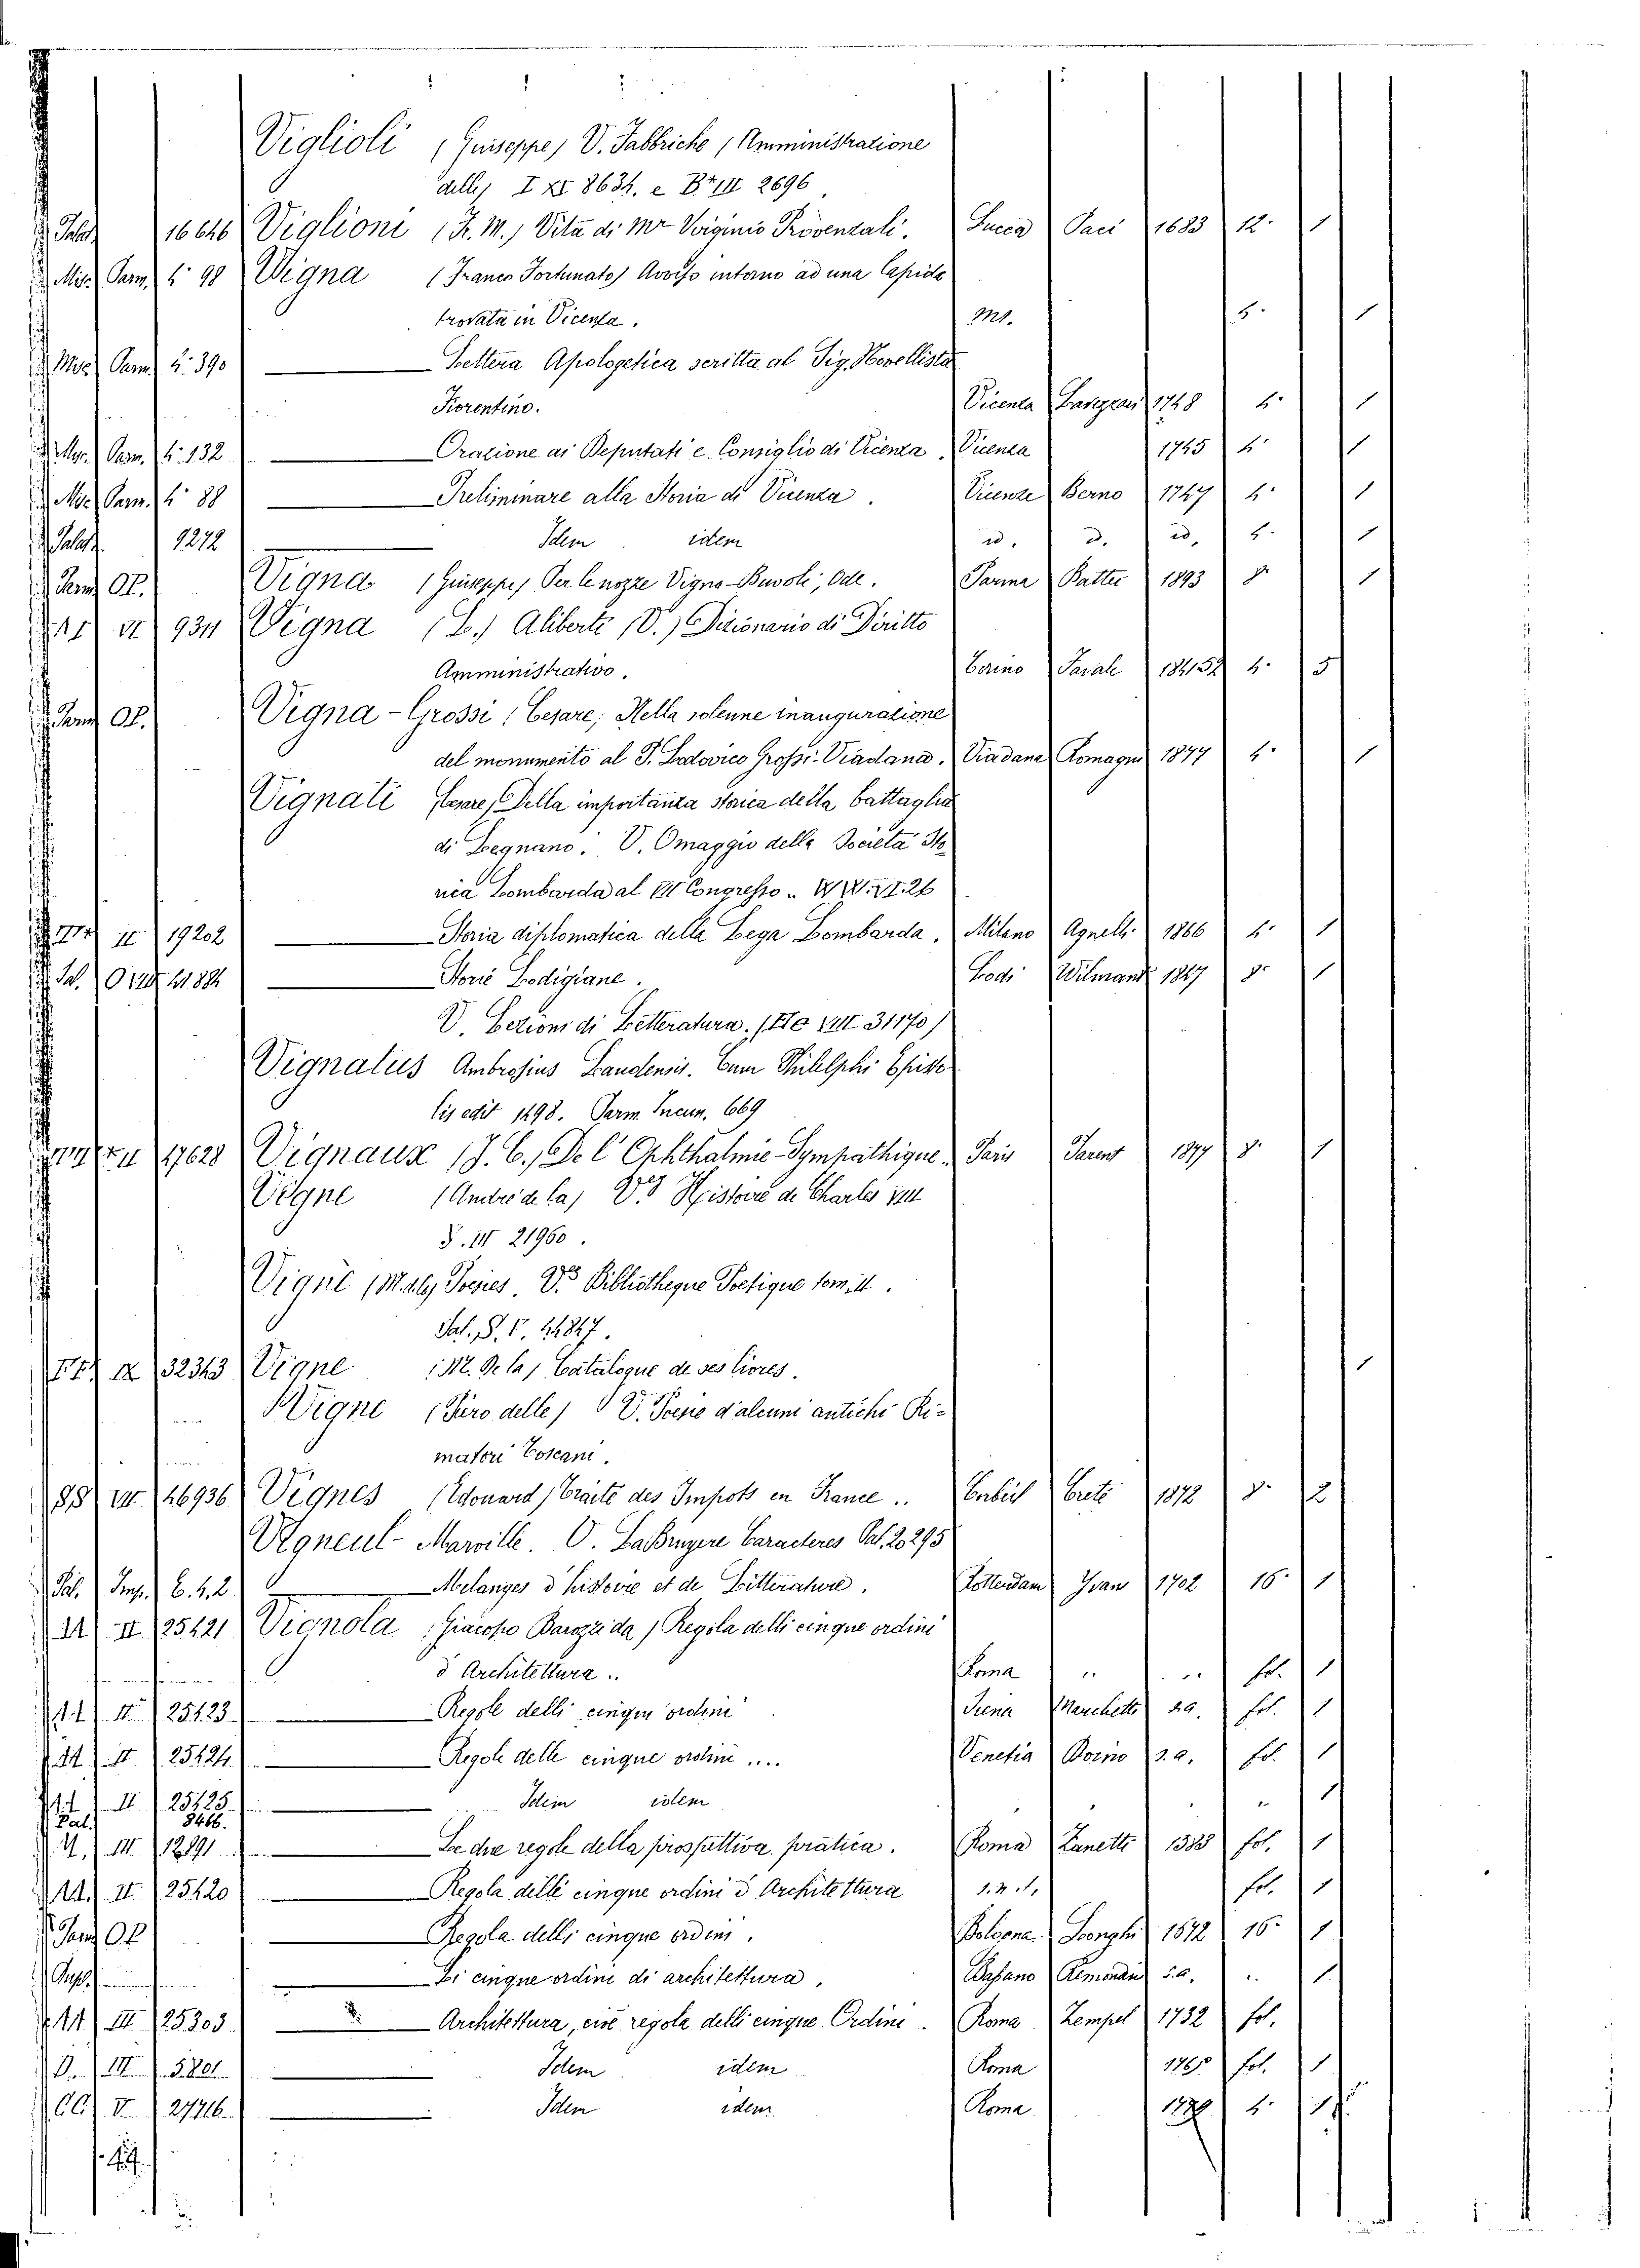 Viglioli (Guiseppe) V. Fabbriche (Amministrazione
delle) I XI 8634. e B* III 2696
Palat 16646 Viglioni (F. M.) Vita di Mr Virginio Provenzali. Lucca Paci 1683 12. 1
Misc. Parm. 4. 98 Vigna (Franco Fortunato) Avviso intorno ad una Lapide
trovata in Vicenza. Ms. 4. 1
Misc. Parm. 4. 390 Lettera Apologetica scritta al Sig. Novellista
Fiorentino. Vicenza 1748 4. 1
Misc. Parm. 4. 132 Orazione ai Deputati e Consiglio di Vicenza Vicenza 1745 4. 1
Misc. Parm. 4. 88 Preliminare alla Storia di Vicenza. Vicenza Berno 1747 4. 1
Palat. 9272 Idem idem id. id. id. 4. 1
Parm. OP. Vigna (Giuseppe) Per le nozze Vigna-Buvoli; Ode. Parma Battei 1893 8. 1
VI 9311 Vigna (L.) Aliberti (V.) Dizionario di Diritto
Amministrativo. Torino Favale 1841 52 4. 5
Parm. OP. Vigna-Grossi (Cesare) Nella solenne inaugurazione
del monumento al P. Lodovico Grossi-Viadana. Viadana Romagn 1877 4. 1
Vignati (Cesare) Della importanza storica della battaglia
di Legnano. V. Omaggio della Società Sto
rica Lombarda al III Congresso.. VI. 26
II 19202 Storia diplomatica della Lega Lombarda. Milano Agnelli 1866 4. 1
Storie Lodigiane. Lodi Wilmant 1847 8. 1
V. Lezioni di Letteratura. ( VIII 31170)
Vignatus Ambrosius Laudensis. Cum Philelphi Episto
lis edit 1498. Parm. Incun. 669
17628 Vignaux (J. C.) De l'Ophthalmie-Sympathique. Paris Parent 1877 8. 1
Vigne (André de la) V.s Histoire de Charles VIII
S. III 21960.
Vigne (M. de) Poesies V.s Bibliotheque Poetique tom. II.
Pal. S. V. 11847.
IX 32343 Vigne (M. De la) Catalogue de ses livres. 1
Vigne (Piro delle) V. Poesie d'alcuni antichi Ri-
matori Toscani.
SS VII 26936 Vignes (Edouard) Traité des Impots en France.. Corbeil Creté 1872 8. 2
Vigneul-Marville. V. La Bruyere Caracteres Pal. 20295
Pal. Imp. C. 4. 2 Melanges d'histoire et de Litterature. Rotterdam Yvan 1702 16. 1
II 25421 Vignola (Giacopo Barozzi da) Regola delli cinque ordini
d'Architettura.. Roma .. .. fol. 1
II 25423 Regole delli cinque ordini Siena Marchetti s.a. fol. 1
II 25424 Regole delle cinque ordini .... Venetia Porro s.a. fol. 1
II 25425 Idem idem .. 1
Pal. 3466.
III 12891 Le due regole della prospettiva pratica. Roma Zanetti 1583 fol. 1
II 25420 Regola delli cinque ordini d'Architettura s.n.t. fol. 1
Parm. OP Regola delli cinque ordini. Bologna Longhi 1672 16. 1
Li cinque ordini di architettura. Bassano Remondini s.a. .. 1
III 25303 Architettura, cioè regola delli cinque Ordini. Roma Zempel 1732 fol.
III 5801 Idem idem Roma 1765 fol. 1
CC V 27716. Idem idem Roma 4. 1